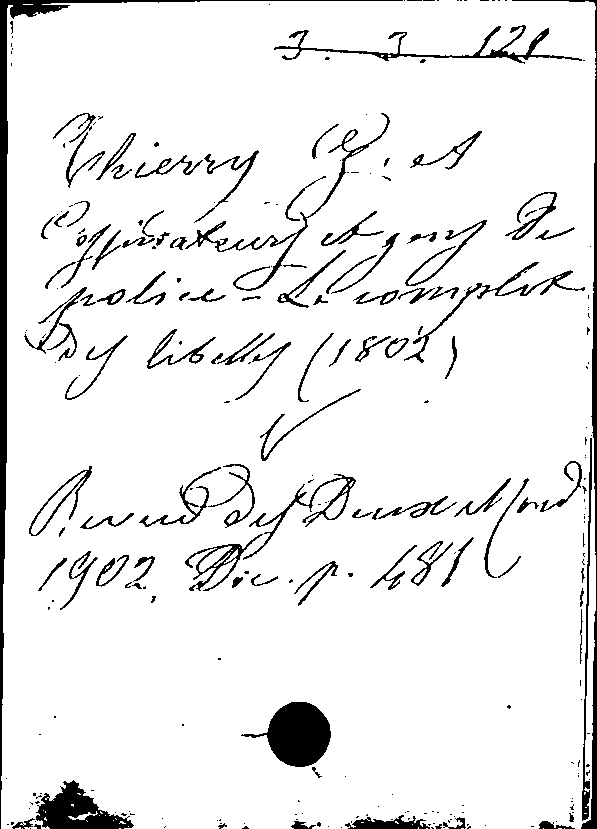 3. 3. 121
Thierry G. et
Conspirateurs et gens de
police - Le complot
des libelles (1802)
Revue des Deux Mond
1902. Déc. p. 481